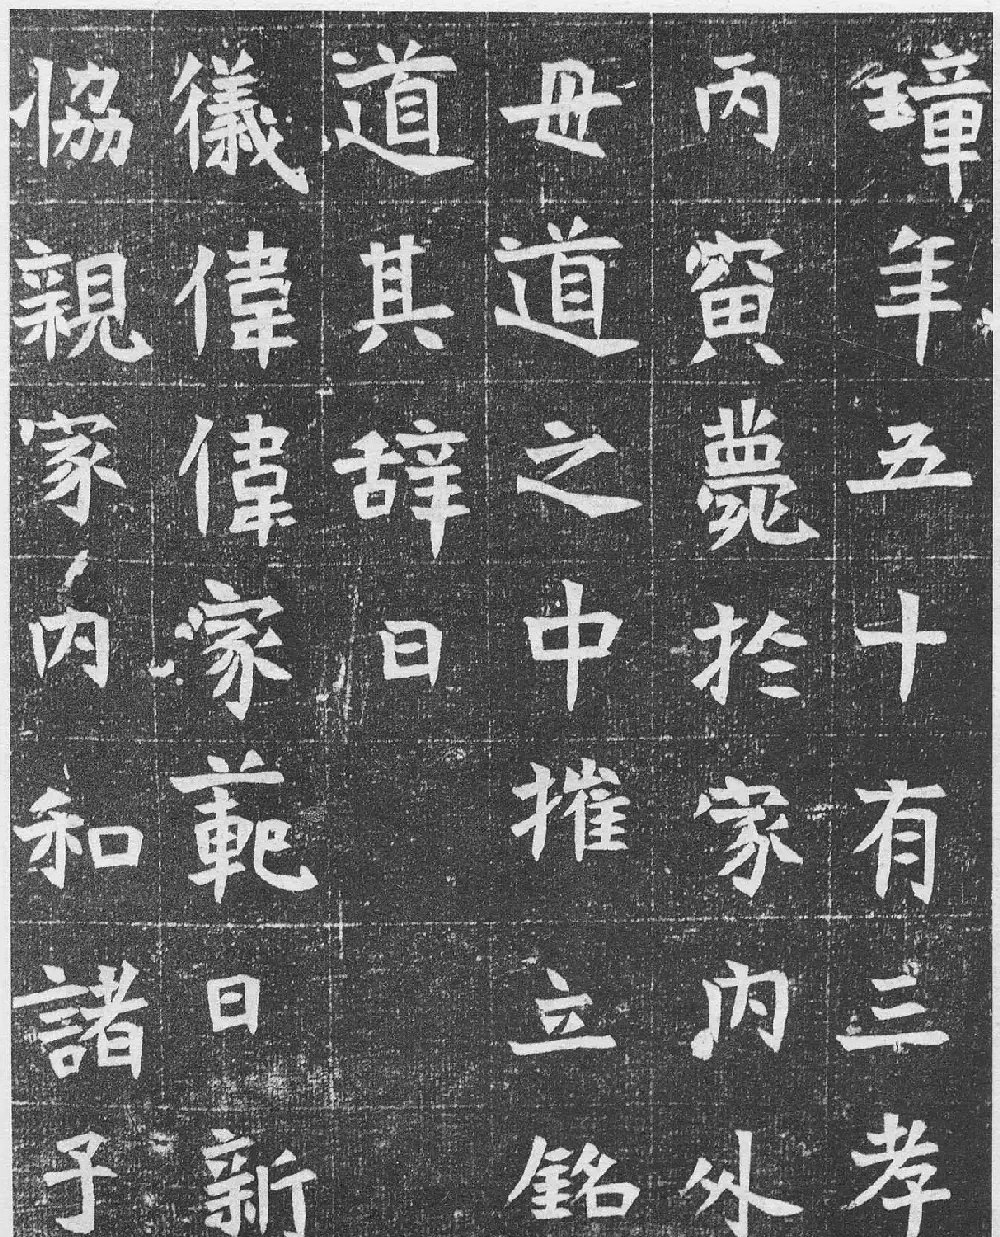 璋年五十有三孝
丙寅薨於家内外
毌道之中摧立銘
道其辞曰
儀偉偉家範日新
協親家内和諸子